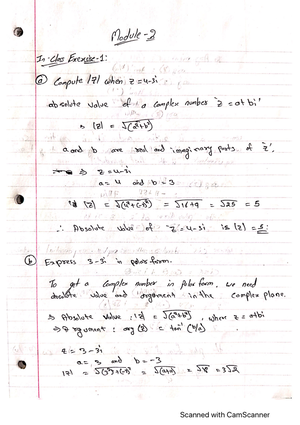 Module-2
In-Class Exercise-1:
a) Compute |z| when z = 4-3i
absolute value of a complex number 'z = a+bi'
|z| = √(a²+b²)
a and b are real and imaginary parts of 'z'.
⇒ z = 4-3i
a = 4 and b = 3
|z| = √(4²+(-3)²) = √16+9 = √25 = 5
∴ Absolute value of 'z = 4-3i' is |z| = 5.
b) Express 3-3i in polar form.
To get a complex number in polar form, we need
absolute value and argument in the complex plane.
⇒ Absolute Value: |z| = √(a²+b²), where z = a+bi
⇒ Argument: arg(z) = tan⁻¹(b/a)
z = 3-3i
a = 3 and b = -3
|z| = √(3²)+(-3)² = √(9+9) = √18 = 3√2
Scanned with CamScanner